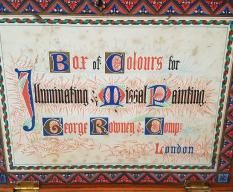 Box of Colours for
Illuminating & Missal Painting.
George Rowney & Comp:
London